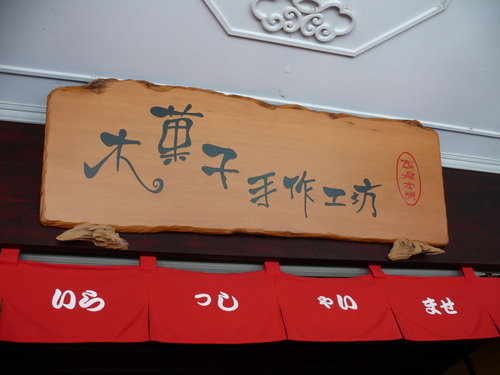 木菓子手作工坊
いら っし ゃい ませ